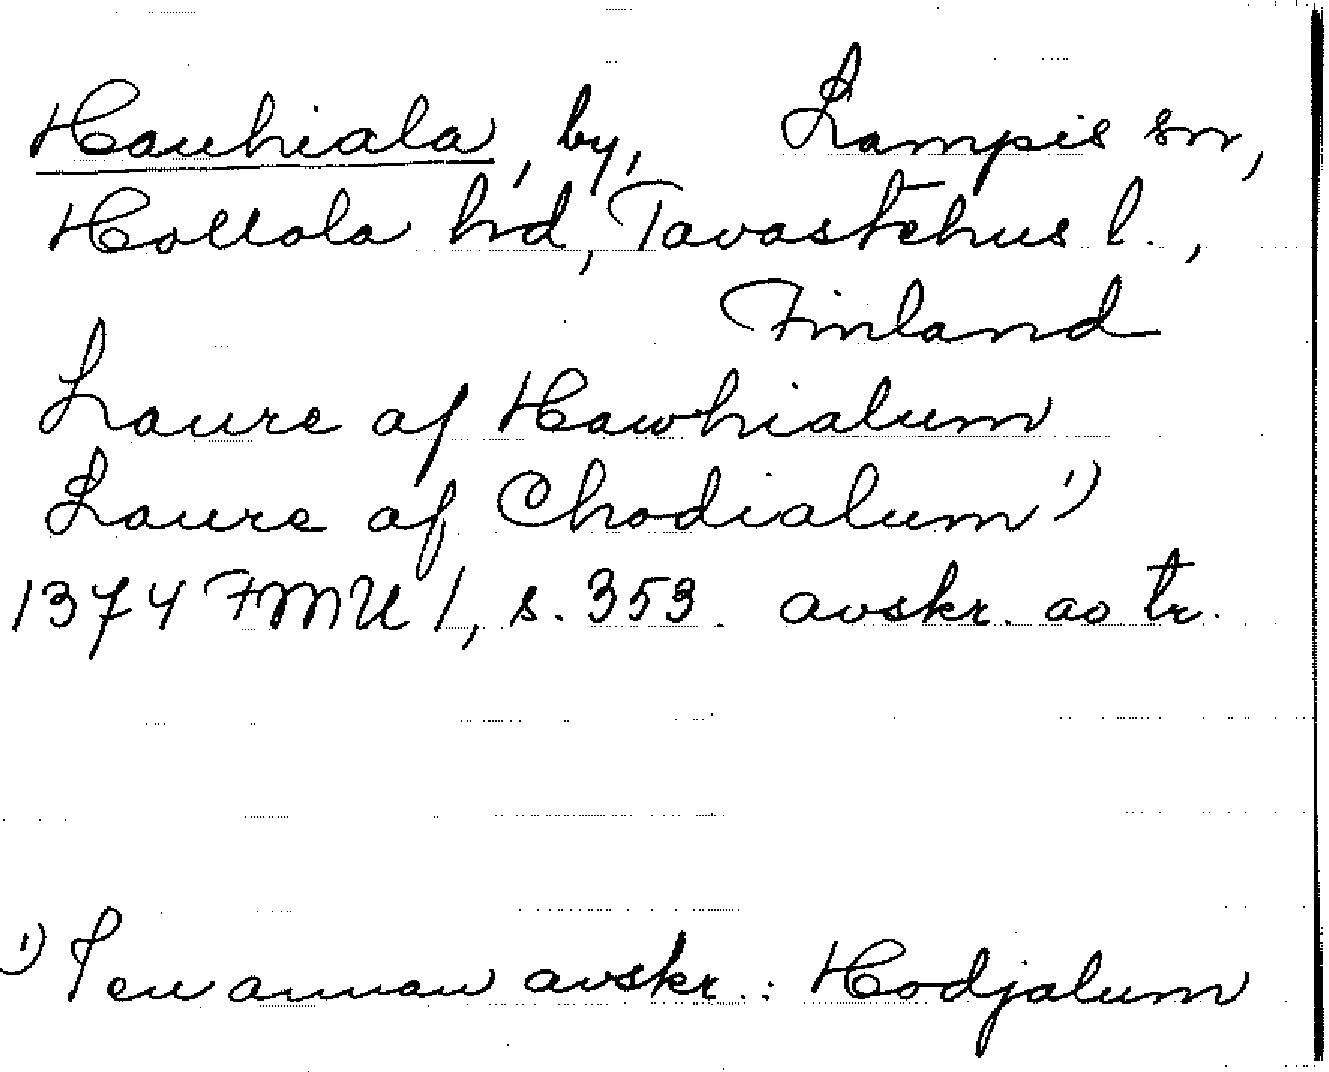 Hauhiala, by, Lampis sn,
Hollola hd, Tavastehus l.,
Finland
Laure af Hawhialum
Laure af Chodialum 1)
1374 FMU 1, s. 353. avskr. ao tr.
1) I en annan avskr.: Hodjalum